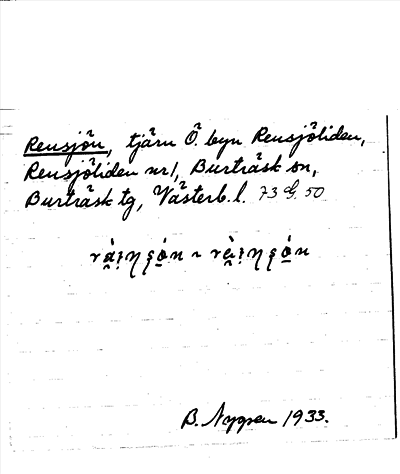 Rensjön, tjärn Ö. byn Rensjöliden,
Rensjöliden nr 1, Burträsk sn,
Burträsk tg, Västerb. l. 73 G. 50
B. Nygren 1933.